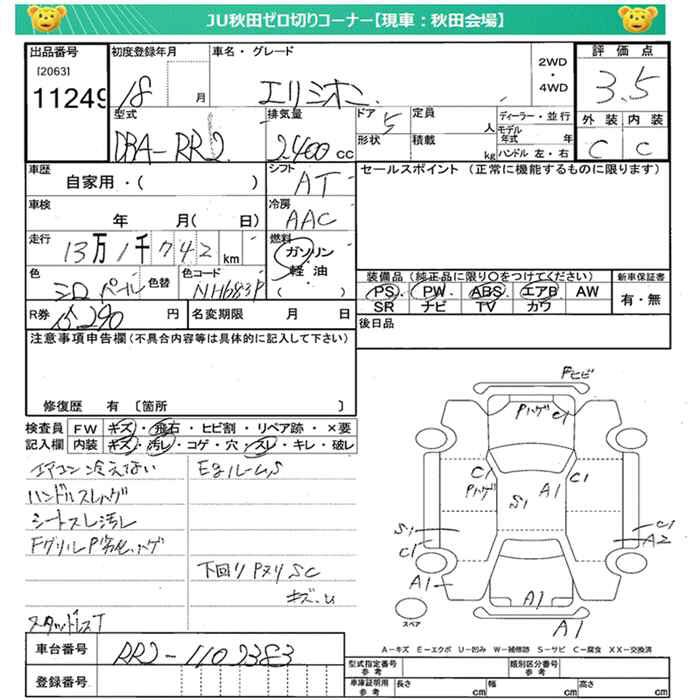 JU秋田ゼロ切りコーナー【現車：秋田会場】
出品番号 初度登録年月 車名・グレード 評価点
[2063]
11249 18 月 エリシオン 2WD・4WD 3.5
型式 排気量 ドア 定員 ディーラー・並行 外装 内装
DBA-RR2 2400 cc 5 人 モデル年式 年 C C
形状 積載 kg ハンドル 左・右
車歴 シフト セールスポイント（正常に機能するものに限ります）
自家用・( ) AT
車検 冷房
年 月( 日) AAC
走行 燃料
13万1千742 km ガソリン
軽油
( )
色 色替 色コード 装備品（純正品に限り○をつけてください） 新車保証書
シロパール NH683P PS PW ABS エアB AW 有・無
SR ナビ TV カワ
R券 円 名変期限 月 日 後日品
注意事項申告欄（不具合内容等は具体的に記入して下さい）
修復歴 有 〔箇所 〕
検査員 FW キズ・飛石・ヒビ割・リペア跡・×要
記入欄 内装 キズ・汚レ・コゲ・穴・スレ・キレ・破レ
エアコン冷えない EgルームS
ハンドルスレハゲ
シートスレ汚レ
FグリルP劣化ハゲ
下回りPヌリSC
スタッドレスT
車台番号 RR2-1102383
登録番号
Fヒビ
Pハゲ C1
C1 C1
Pハゲ A1
S1
S1 C1
C1 A2
A1
A1
A1
スペア
A－キズ E－エクボ U－凹み W－補修跡 S－サビ C－腐食 XX－交換済
型式指定番号 参考 類別区分番号 参考
車庫証明用 参考 長さ cm 幅 cm 高さ cm